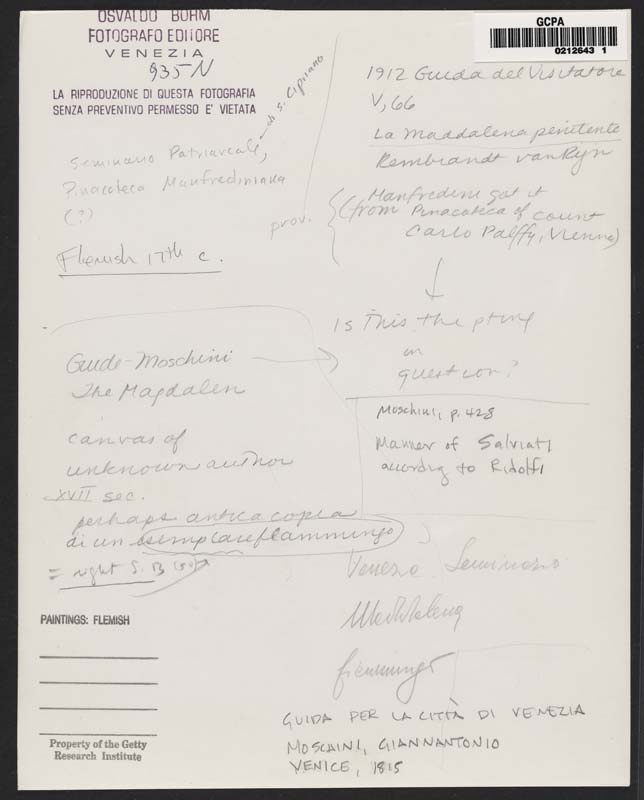 OSVALDO BÖHM
FOTOGRAFO EDITORE
VENEZIA
935 N
LA RIPRODUZIONE DI QUESTA FOTOGRAFIA
SENZA PREVENTIVO PERMESSO E' VIETATA
GCPA
0212643 1
di S. Cipriano
Seminario Patriarcale,
Pinacoteca Manfrediniana
(?)
Flemish 17th c.
1912 Guida del Visitatore
V, 66
La Maddalena penitente
Rembrandt van Ryn
prov.
(Manfredini got it
from Pinacoteca of count
Carlo Palffy, Vienna)
Is this the ptng
in
question?
Guide-Moschini
The Magdalen
canvas of
unknown author
XVII sec.
perhaps antica copia
di un esemplare fiammingo
= right S. B
Moschini, p. 428
Manner of Salviati
according to Ridolfi
Venezia Seminario
Maddalena
fiammingo
PAINTINGS: FLEMISH
Property of the Getty
Research Institute
GUIDA PER LA CITTÀ DI VENEZIA
MOSCHINI, GIANNANTONIO
VENICE, 1815